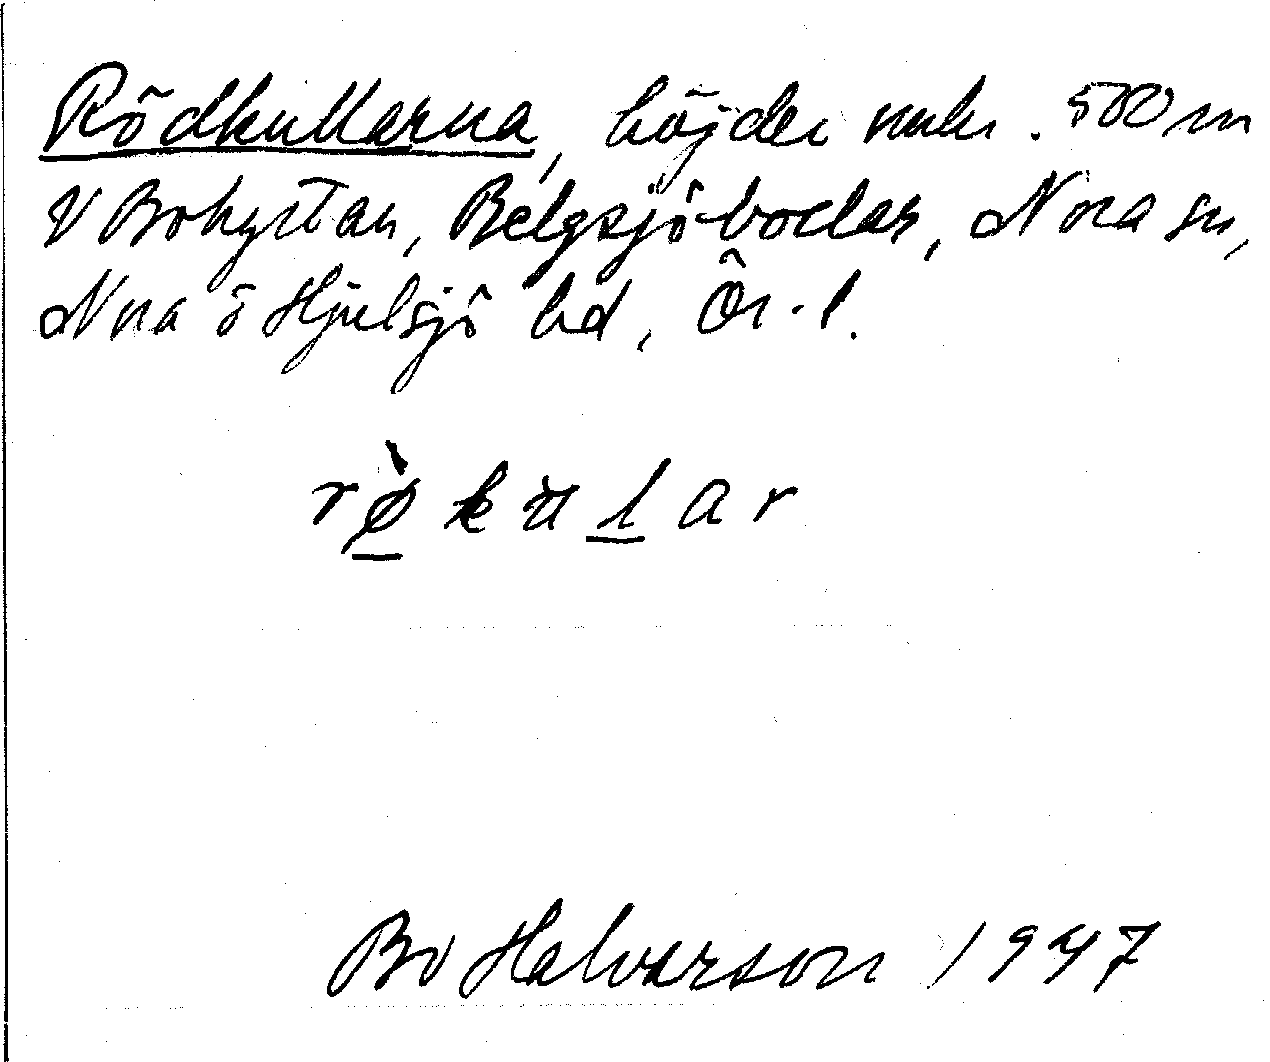 Rödkullarna, höjder 500 m
V Bohyttan, Bälgsjöbodar, Nora sn,
Nora o Hjulsjö hd, Ör. l.
rø̀kular
Bo Halvarson 1947